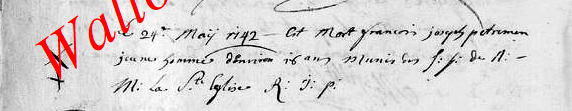 Wallo
Le 24e Maÿ 1742 – Est Mort francois joseph petremen
jeune homme d'Environ 16 ans Munis des s: s: de N: –
M: la Ste Eglise R: J: p: